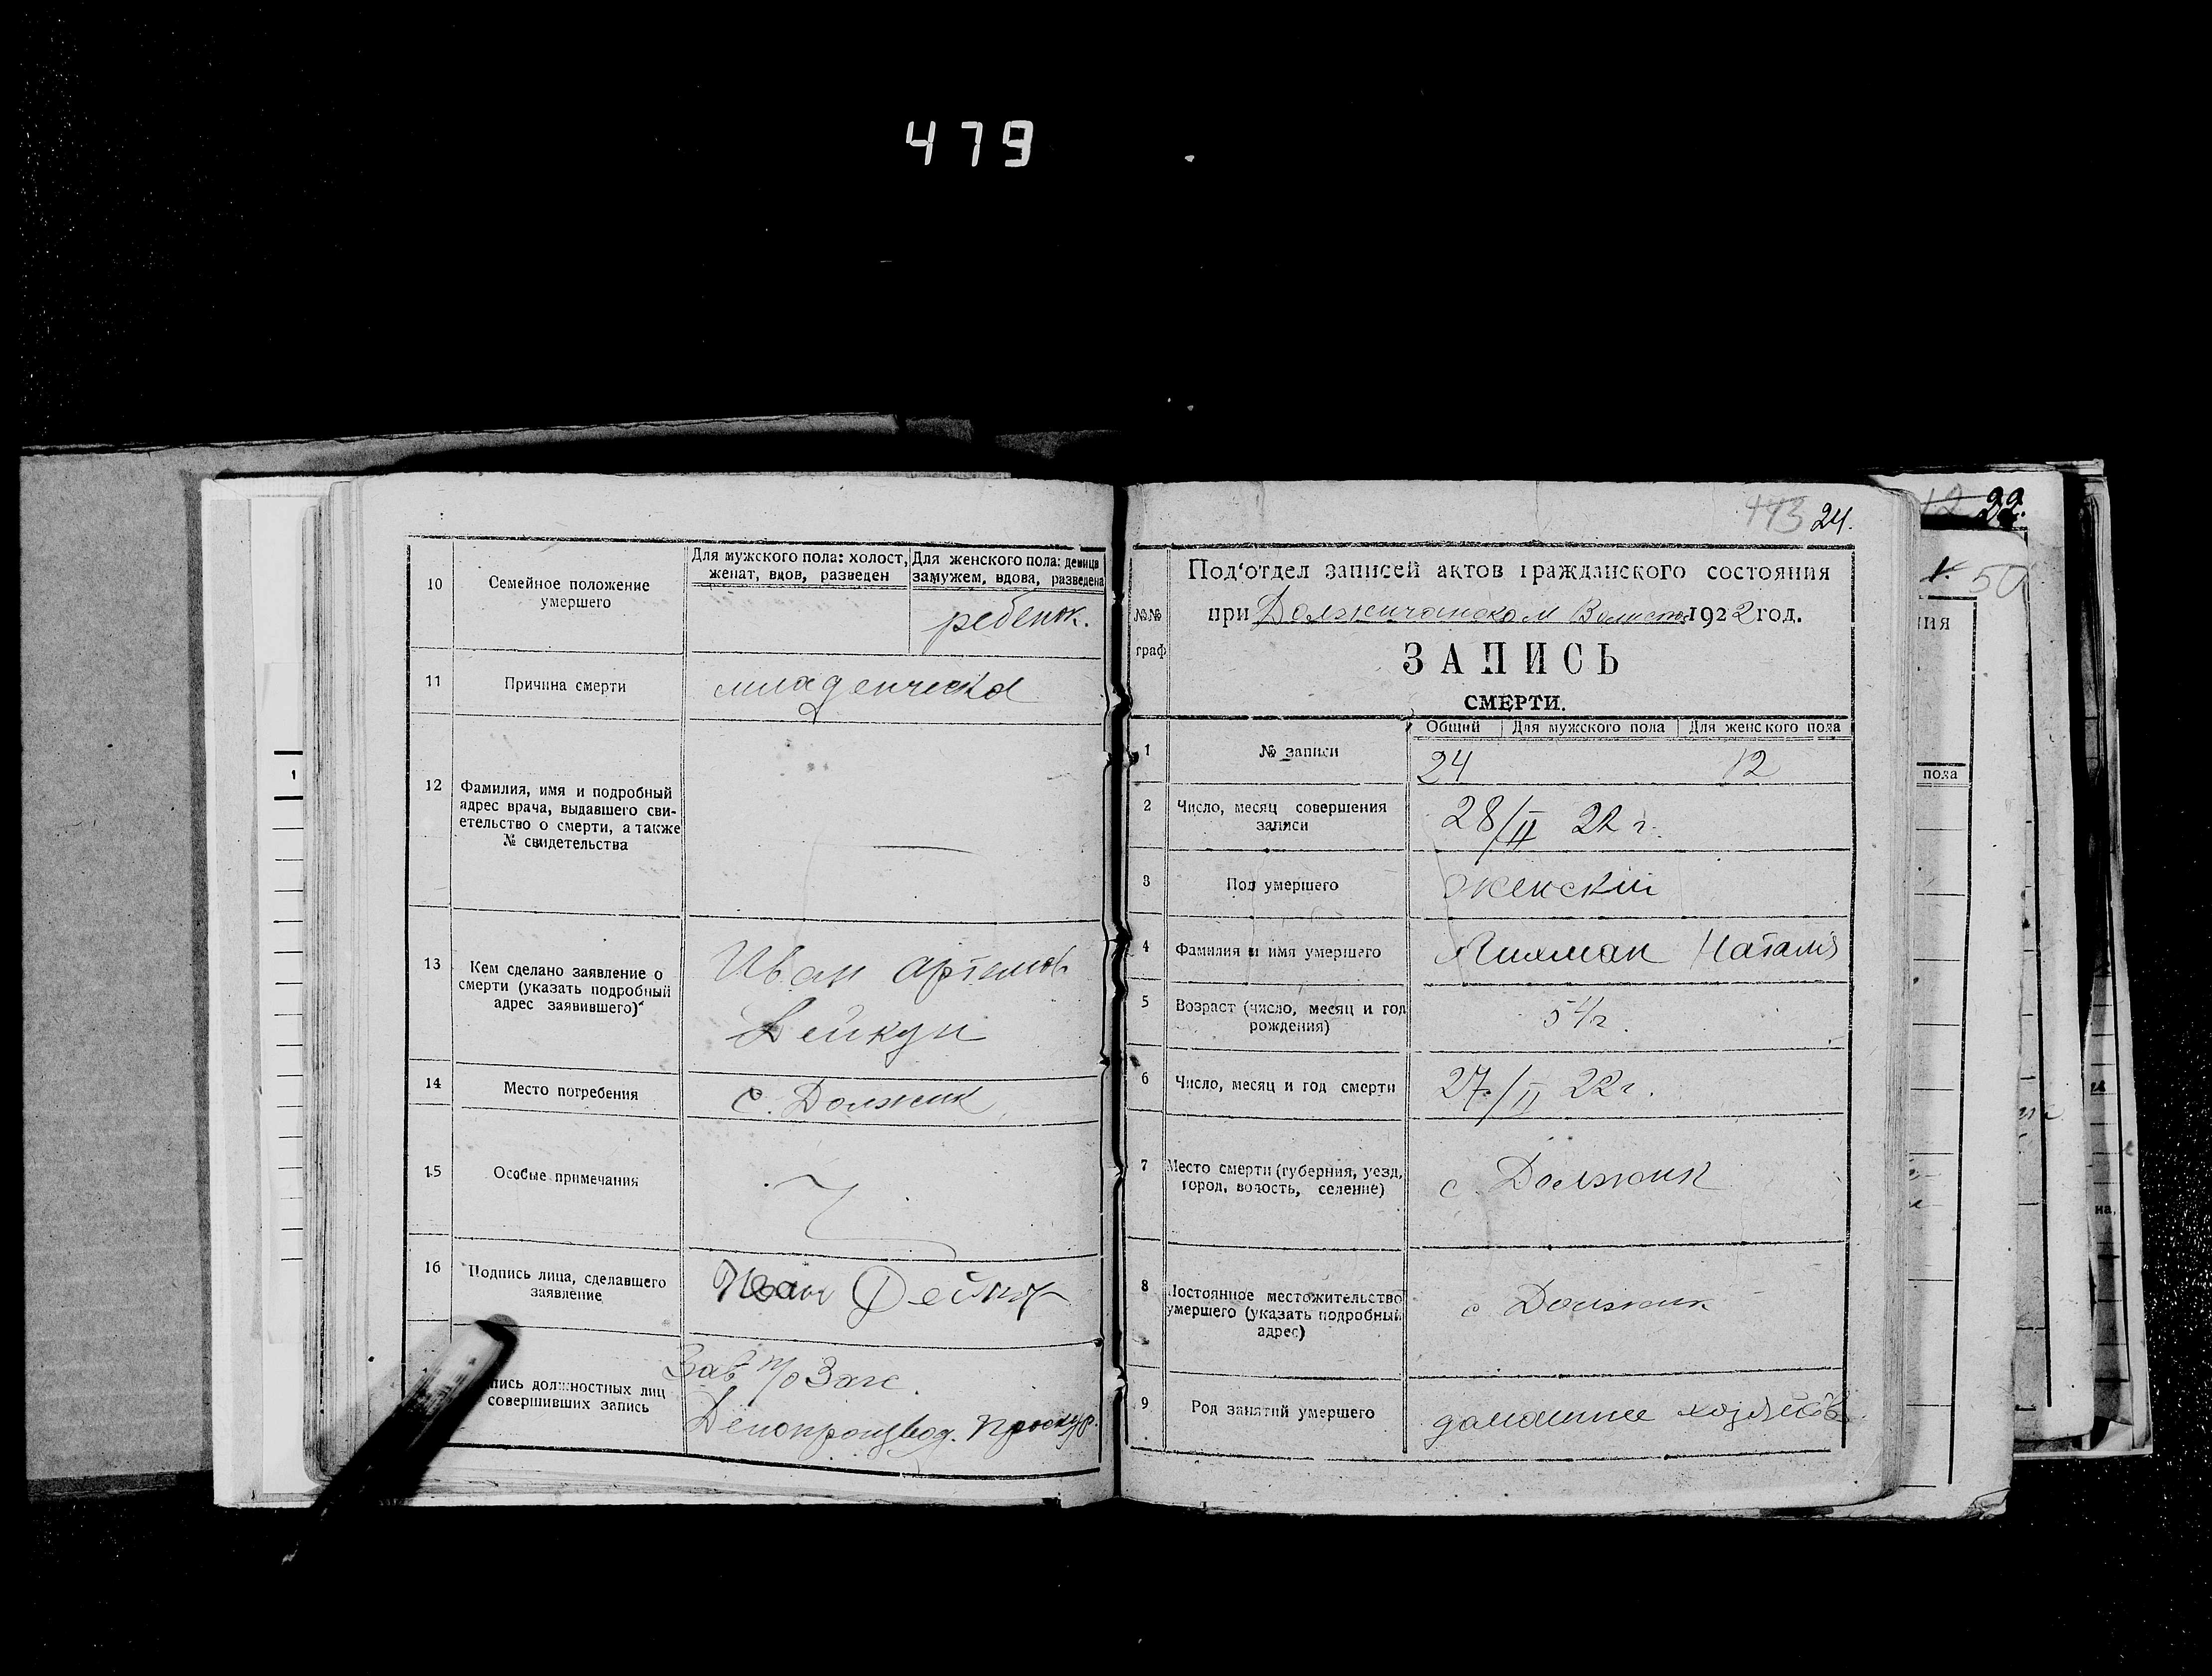 479
10
Семейное положение
умершего
Для мужского пола: холост,
женат, вдов, разведен
Для женского пола: девица
замужем, вдова, разведена
ребенок.
11
Причина смерти
младенческа
12
Фамилия, имя и подробный
адрес врача, выдавшего сви-
етельство о смерти, а также
№ свидетельства
13
Кем сделано заявление о
смерти (указать подробный
адрес заявившего)
Иван Артемов
Дейкун
14
Место погребения
с. Должик
15
Особые примечания
16
Подпись лица, сделавшего
заявление
Иван
пись должностных лиц
совершивших запись
Зав п/о Загс.
Делопроизвод. Проскур.
443 24.
№№
граф
Под‘отдел записей актов гражданского состояния
при Должичанском 1922 год.
ЗАПИСЬ
СМЕРТИ.
Общий Для мужского пола Для женского пола
1
№ записи
24 12
2
Число, месяц совершения
записи
28/II 22 г.
3
Пол умершего
женский
4
Фамилия и имя умершего
Наталія
5
Возраст (число, месяц и год
рождения)
6
Число, месяц и год смерти
27/II 22 г.
7
Место смерти (губерния, уезд,
город, волость, селение)
с. Должик
8
Постоянное местожительство
умершего (указать подробный
адрес)
с Должик
9
Род занятий умершего
домашнее хозяйств
22.
50
ния
пола
на,